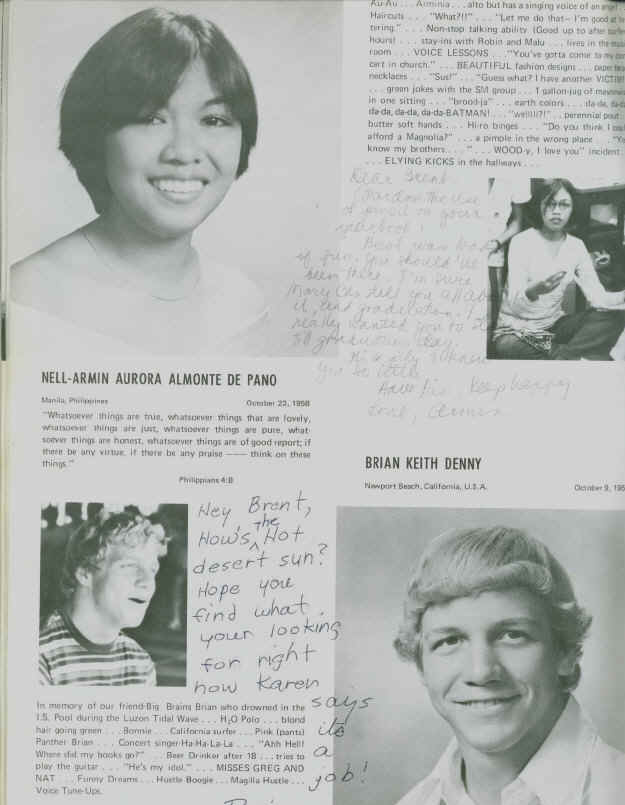 Au-Au . . . Arminia . . . alto but has a singing voice of an angel
Haircuts . . . "What?!!" . . . "Let me do that— I'm good at
tering." . . . Non-stop talking ability (Good up to after
hours) . . . stay-ins with Robin and Malu . . . lives in the
room . . . VOICE LESSONS . . . "You've gotta come to my con
cert in church." . . . BEAUTIFUL fashion designs . . .
necklaces . . . "Sus!" . . . "Guess what? I have another VICTIM
. . . green jokes with the SM group . . . 1 gallon-jug of
in one sitting . . . "brood-ja" . . . earth colors . . . da-da, da-da
da-da, da-da, da-da-BATMAN! . . . "wellll?!" . . perennial pout
butter soft hands . . . Hiiro binges . . . "Do you think I
afford a Magnolia?" . . . a pimple in the wrong place . . .
know my brothers. . ." . . . WOOD-y, I love you" incident
. . . ELYING KICKS in the hallways . . .
Dear Brent
Pardon the use
of pencil on your
yearbook!
Boat was loads
of fun. You should've
been there. I'm sure
Mary tell you all about
it, and graduation. I
really wanted you to
graduation day.
to know
you
Have fun, keep happy
Love, Armin
NELL-ARMIN AURORA ALMONTE DE PANO
Manila, Philippines October 23, 1958
"Whatsoever things are true, whatsoever things that are lovely,
whatsoever things are just, whatsoever things are pure, what-
soever things are honest, whatsoever things are of good report; if
there be any virtue, if there be any praise —— think on these
things."
Philippians 4:8
BRIAN KEITH DENNY
Newport Beach, California, U.S.A. October 9, 195
Hey, Brent,
How's the Hot
desert sun?
Hope you
find what
your looking
for right
now Karen
says
its
a
job!
In memory of our friend-Big Brains Brian who drowned in the
I.S. Pool during the Luzon Tidal Wave . . . H₂O Polo . . . blond
hair going green . . . Bonnie . . . California surfer . . . Pink (pants)
Panther Brian . . . Concert singer-Ha-Ha-La-La . . . "Ahh Hell!
Where did my books go?" . . Beer Drinker after 18 . . . tries to
play the guitar . . . "He's my idol." . . . MISSES GREG AND
NAT . . . Funny Dreams . . . Hustle Boogie . . . Magilla Hustle . . .
Voice Tune-Ups.